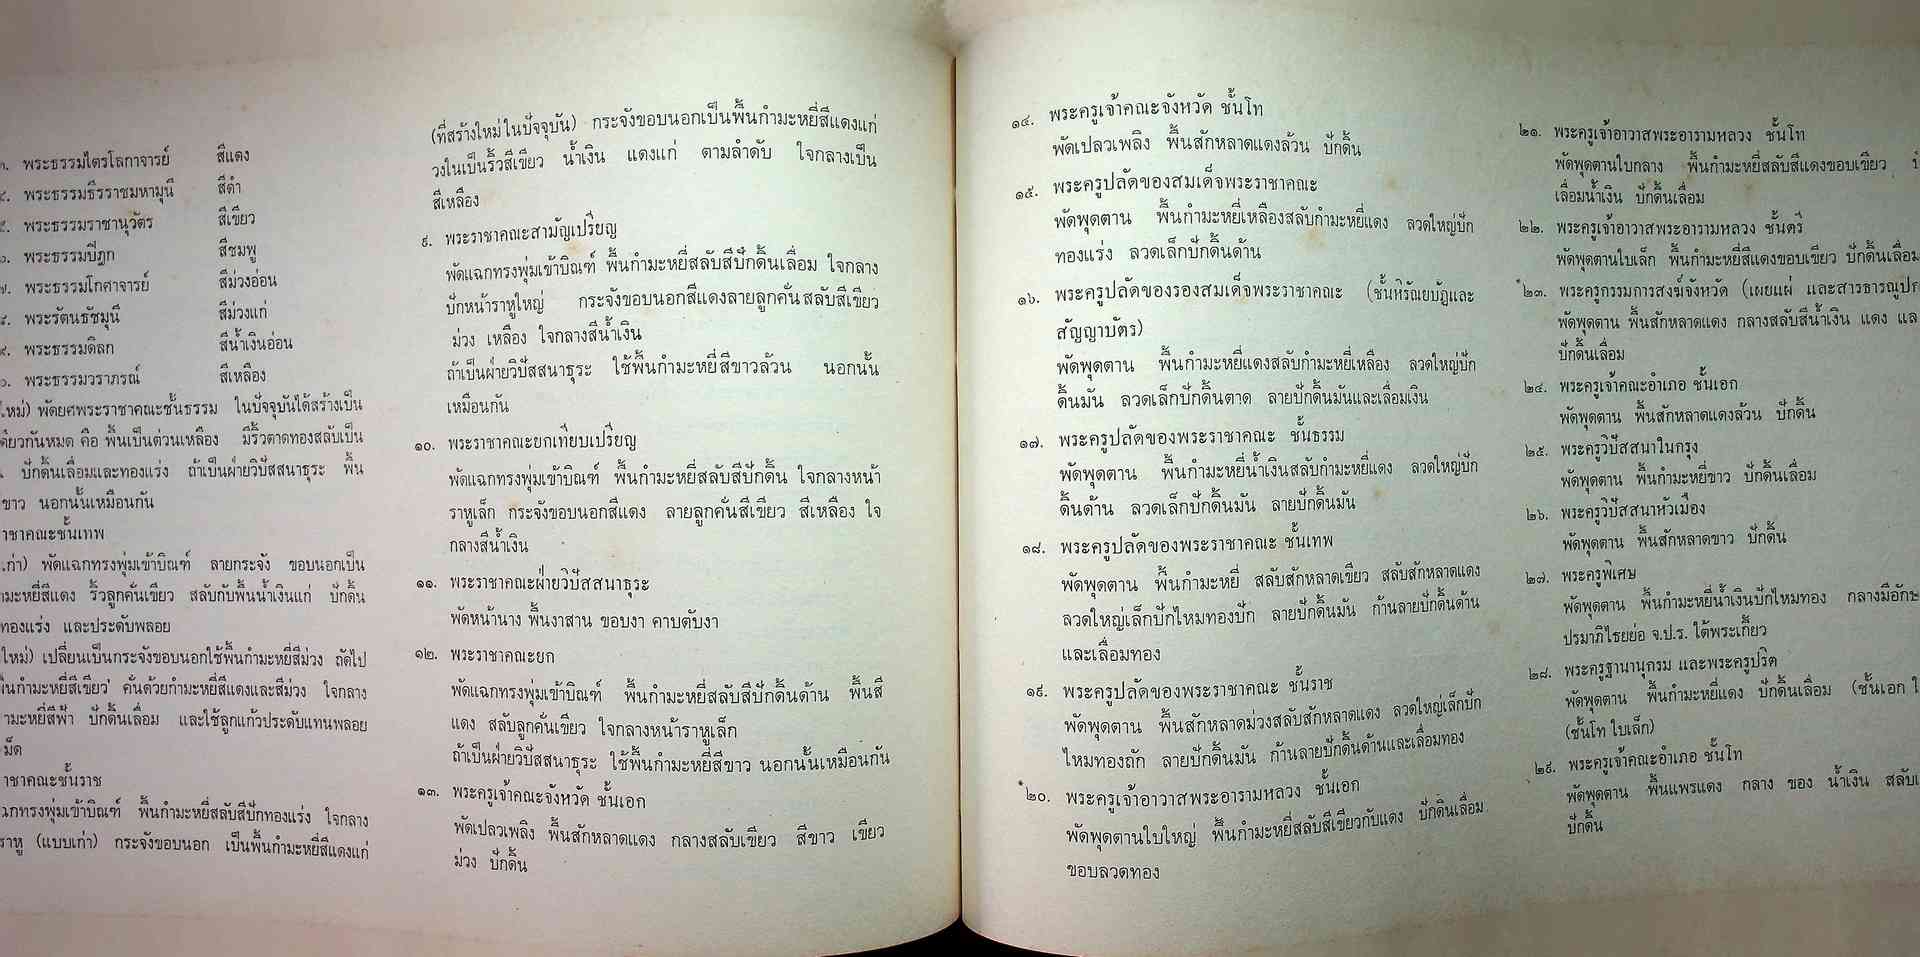 พระธรรมไตรโลกาจารย์ สีแดง
พระธรรมธีรราชมหามุนี สีดำ
พระธรรมราชานุวัตร สีเขียว
พระธรรมปิฎก สีชมพู
๗. พระธรรมโกศาจารย์ สีม่วงอ่อน
๘. พระรัตนธัชมุนี สีม่วงแก่
๙. พระธรรมดิลก สีน้ำเงินอ่อน
พระธรรมวราภรณ์ สีเหลือง
ใหม่) พัดยศพระราชาคณะชั้นธรรม ในปัจจุบันได้สร้างเป็น
เดียวกันหมด คือ พื้นเป็นต่วนเหลือง มีริ้วตาดทองสลับเป็น
ปักดิ้นเลื่อมและทองแร่ง ถ้าเป็นฝ่ายวิปัสสนาธุระ พื้น
ขาว นอกนั้นเหมือนกัน
าชาคณะชั้นเทพ
เก่า) พัดแฉกทรงพุ่มเข้าบิณฑ์ ลายกระจัง ขอบนอกเป็น
ำมะหยี่สีแดง ริ้วลูกคั่นเขียว สลับกับพื้นน้ำเงินแก่ ปักดิ้น
ทองแร่ง และประดับพลอย
ใหม่) เปลี่ยนเป็นกระจังขอบนอกใช้พื้นกำมะหยี่สีม่วง ถัดไป
พื้นกำมะหยี่สีเขียว คั่นด้วยกำมะหยี่สีแดงและสีม่วง ใจกลาง
ำมะหยี่สีฟ้า ปักดิ้นเลื่อม และใช้ลูกแก้วประดับแทนพลอย
ม็ด
าชาคณะชั้นราช
ฉกทรงพุ่มเข้าบิณฑ์ พื้นกำมะหยี่สลับสีปักทองแร่ง ใจกลาง
ราหู (แบบเก่า) กระจังขอบนอก เป็นพื้นกำมะหยี่สีแดงแก่
(ที่สร้างใหม่ในปัจจุบัน) กระจังขอบนอกเป็นพื้นกำมะหยี่สีแดงแก่
วงในเป็นริ้วสีเขียว น้ำเงิน แดงแก่ ตามลำดับ ใจกลางเป็น
สีเหลือง
๙. พระราชาคณะสามัญเปรียญ
พัดแฉกทรงพุ่มเข้าบิณฑ์ พื้นกำมะหยี่สลับสีปักดิ้นเลื่อม ใจกลาง
ปักหน้าราหูใหญ่ กระจังขอบนอกสีแดงลายลูกคั่นสลับสีเขียว
ม่วง เหลือง ใจกลางสีน้ำเงิน
ถ้าเป็นฝ่ายวิปัสสนาธุระ ใช้พื้นกำมะหยี่สีขาวล้วน นอกนั้น
เหมือนกัน
๑๐. พระราชาคณะยกเทียบเปรียญ
พัดแฉกทรงพุ่มเข้าบิณฑ์ พื้นกำมะหยี่สลับสีปักดิ้น ใจกลางหน้า
ราหูเล็ก กระจังขอบนอกสีแดง ลายลูกคั่นสีเขียว สีเหลือง ใจ
กลางสีน้ำเงิน
๑๑. พระราชาคณะฝ่ายวิปัสสนาธุระ
พัดหน้านาง พื้นงาสาน ขอบงา คาบตับงา
๑๒. พระราชาคณะยก
พัดแฉกทรงพุ่มเข้าบิณฑ์ พื้นกำมะหยี่สลับสีปักดิ้นด้าน พื้นสี
แดง สลับลูกคั่นเขียว ใจกลางหน้าราหูเล็ก
ถ้าเป็นฝ่ายวิปัสสนาธุระ ใช้พื้นกำมะหยี่สีขาว นอกนั้นเหมือนกัน
๑๓. พระครูเจ้าคณะจังหวัด ชั้นเอก
พัดเปลวเพลิง พื้นสักหลาดแดง กลางสลับเขียว สีขาว เขียว
ม่วง ปักดิ้น
๑๔. พระครูเจ้าคณะจังหวัด ชั้นโท
พัดเปลวเพลิง พื้นสักหลาดแดงล้วน ปักดิ้น
๑๕. พระครูปลัดของสมเด็จพระราชาคณะ
พัดพุดตาน พื้นกำมะหยี่เหลืองสลับกำมะหยี่แดง ลวดใหญ่ปัก
ทองแร่ง ลวดเล็กปักดิ้นด้าน
๑๖. พระครูปลัดของรองสมเด็จพระราชาคณะ (ชั้นหิรัณยบัฏและ
สัญญาบัตร)
พัดพุดตาน พื้นกำมะหยี่แดงสลับกำมะหยี่เหลือง ลวดใหญ่ปัก
ดิ้นมัน ลวดเล็กปักดิ้นตาด ลายปักดิ้นมันและเลื่อมเงิน
๑๗. พระครูปลัดของพระราชาคณะ ชั้นธรรม
พัดพุดตาน พื้นกำมะหยี่น้ำเงินสลับกำมะหยี่แดง ลวดใหญ่ปัก
ดิ้นด้าน ลวดเล็กปักดิ้นมัน ลายปักดิ้นมัน
๑๘. พระครูปลัดของพระราชาคณะ ชั้นเทพ
พัดพุดตาน พื้นกำมะหยี่ สลับสักหลาดเขียว สลับสักหลาดแดง
ลวดใหญ่เล็กปักไหมทองปัก ลายปักดิ้นมัน ก้านลายปักดิ้นด้าน
และเลื่อมทอง
๑๙. พระครูปลัดของพระราชาคณะ ชั้นราช
พัดพุดตาน พื้นสักหลาดม่วงสลับสักหลาดแดง ลวดใหญ่เล็กปัก
ไหมทองถัก ลายปักดิ้นมัน ก้านลายปักดิ้นด้านและเลื่อมทอง
๒๐. พระครูเจ้าอาวาสพระอารามหลวง ชั้นเอก
พัดพุดตานใบใหญ่ พื้นกำมะหยี่สลับสีเขียวกับแดง ปักดิ้นเลื่อม
ขอบลวดทอง
๒๑. พระครูเจ้าอาวาสพระอารามหลวง ชั้นโท
พัดพุดตานใบกลาง พื้นกำมะหยี่สลับสีแดงขอบเขียว
เลื่อมน้ำเงิน ปักดิ้นเลื่อม
๒๒. พระครูเจ้าอาวาสพระอารามหลวง ชั้นตรี
พัดพุดตานใบเล็ก พื้นกำมะหยี่สีแดงขอบเขียว ปักดิ้นเลื่อม
๒๓. พระครูกรรมการสงฆ์จังหวัด (เผยแผ่ และสารธารณูปก
พัดพุดตาน พื้นสักหลาดแดง กลางสลับสีน้ำเงิน แดง แล
ปักดิ้นเลื่อม
๒๔. พระครูเจ้าคณะอำเภอ ชั้นเอก
พัดพุดตาน พื้นสักหลาดแดงล้วน ปักดิ้น
๒๕. พระครูวิปัสสนาในกรุง
พัดพุดตาน พื้นกำมะหยี่ขาว ปักดิ้นเลื่อม
๒๖. พระครูวิปัสสนาหัวเมือง
พัดพุดตาน พื้นสักหลาดขาว ปักดิ้น
๒๗. พระครูพิเศษ
พัดพุดตาน พื้นกำมะหยี่น้ำเงินปักไหมทอง กลางมีอักษ
ปรมาภิไธยย่อ จ.ป.ร. ใต้พระเกี้ยว
๒๘. พระครูฐานานุกรม และพระครูปริต
พัดพุดตาน พื้นกำมะหยี่แดง ปักดิ้นเลื่อม (ชั้นเอก ใ
(ชั้นโท ใบเล็ก)
๒๙. พระครูเจ้าคณะอำเภอ ชั้นโท
พัดพุดตาน พื้นแพรแดง กลาง ของ น้ำเงิน สลับเ
ปักดิ้น